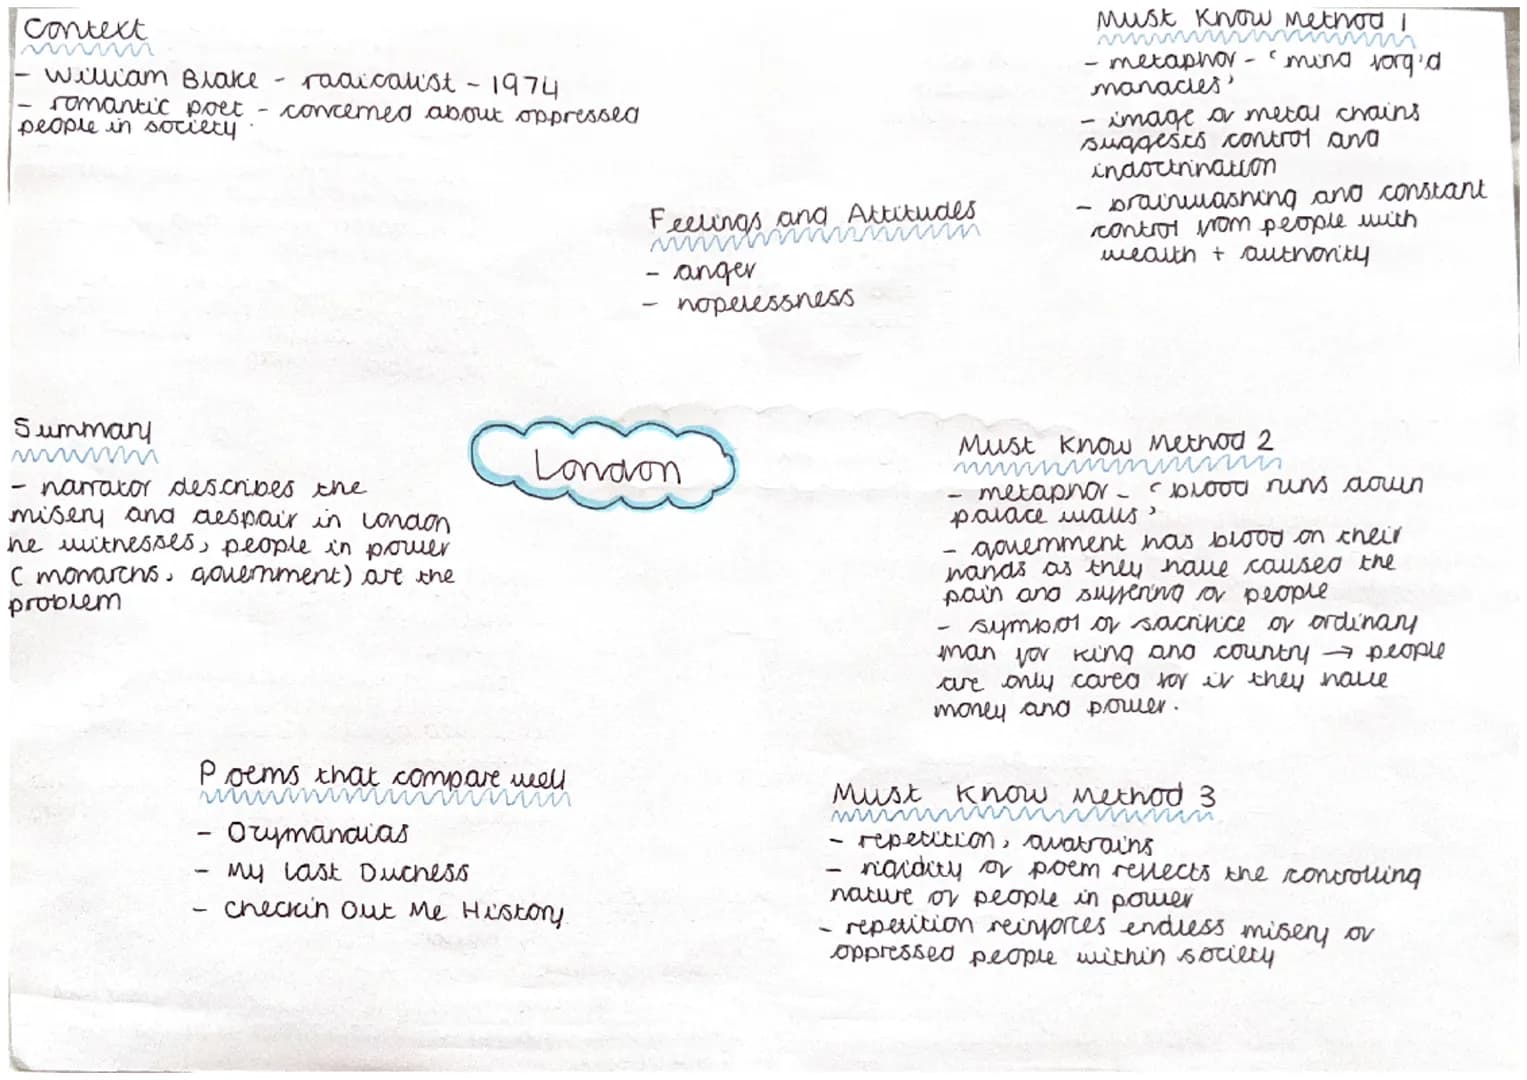 Context
- William Blake - radicalist - 1974
- romantic poet - concerned about oppressed
people in society.
Feelings and Attitudes
- anger
- hopelessness
Must Know Method 1
- metaphor - 'mind forg'd
manacles'
- image of metal chains
suggests control and
indoctrination
- brainwashing and constant
control from people with
wealth + authority
Summary
- narrator describes the
misery and despair in London
he witnesses, people in power
(monarchs, government) are the
problem
London
Must Know Method 2
- metaphor - 'blood runs down
palace walls'
- government has blood on their
hands as they have caused the
pain and suffering of people
- symbol of sacrifice of ordinary
man for king and country → people
are only cared for if they have
money and power.
Poems that compare well
- Ozymandias
- My Last Duchess
- Checkin Out Me History
Must Know Method 3
- repetition, quatrains
- rigidity of poem reflects the controlling
nature of people in power
- repetition reinforces endless misery of
oppressed people within society